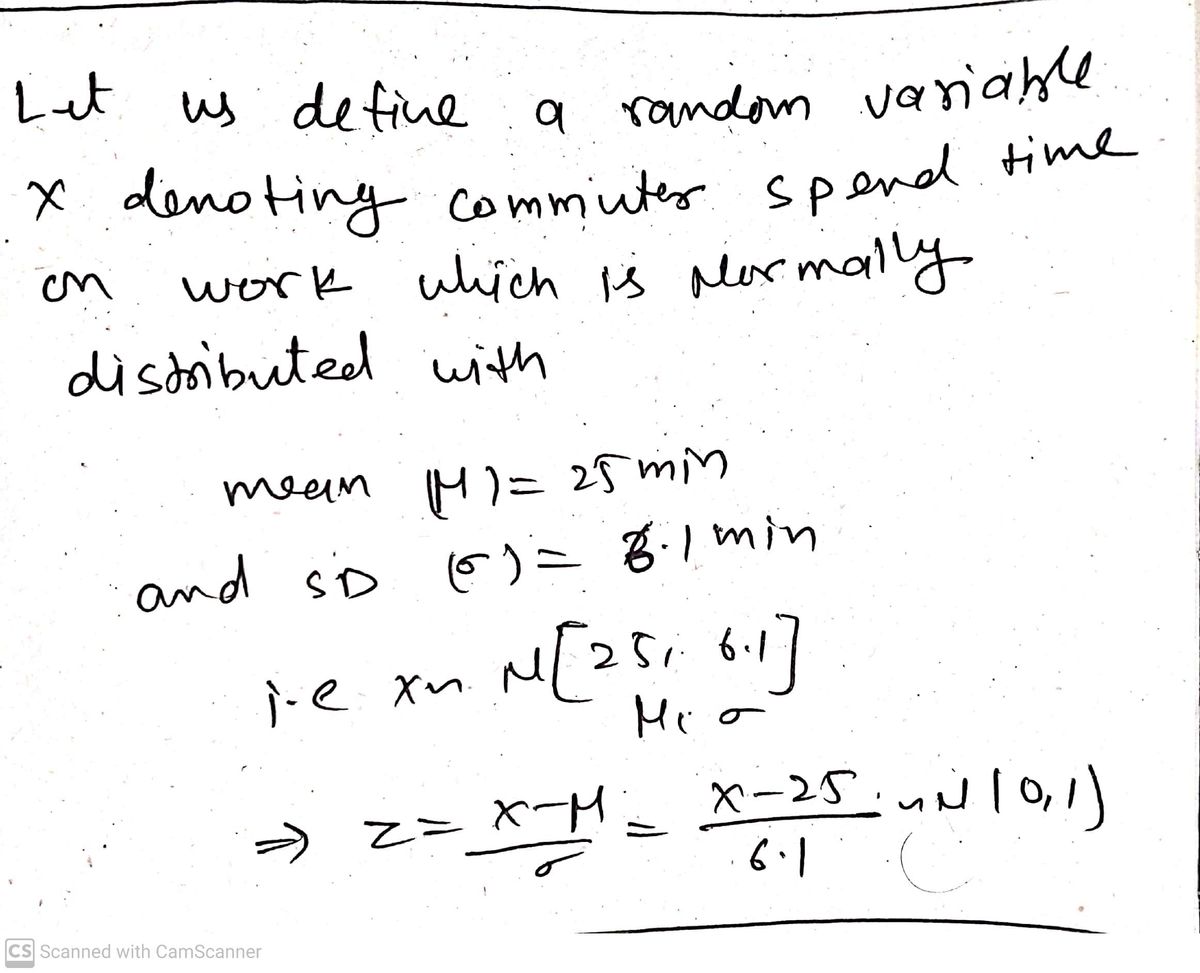 Let us define a random variable
X denoting commuter spend time
on work which is Normally
distributed with
mean (μ) = 25 min
and SD (σ) = 6.1 min
i.e X~ N[25, 6.1]
μ, σ
⇒ Z = X-μ/σ = X-25/6.1 ~ N(0,1)
CS Scanned with CamScanner